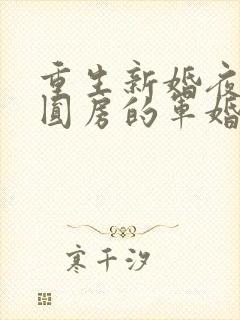 重生新婚夜
圆房的军婚
寒千汐